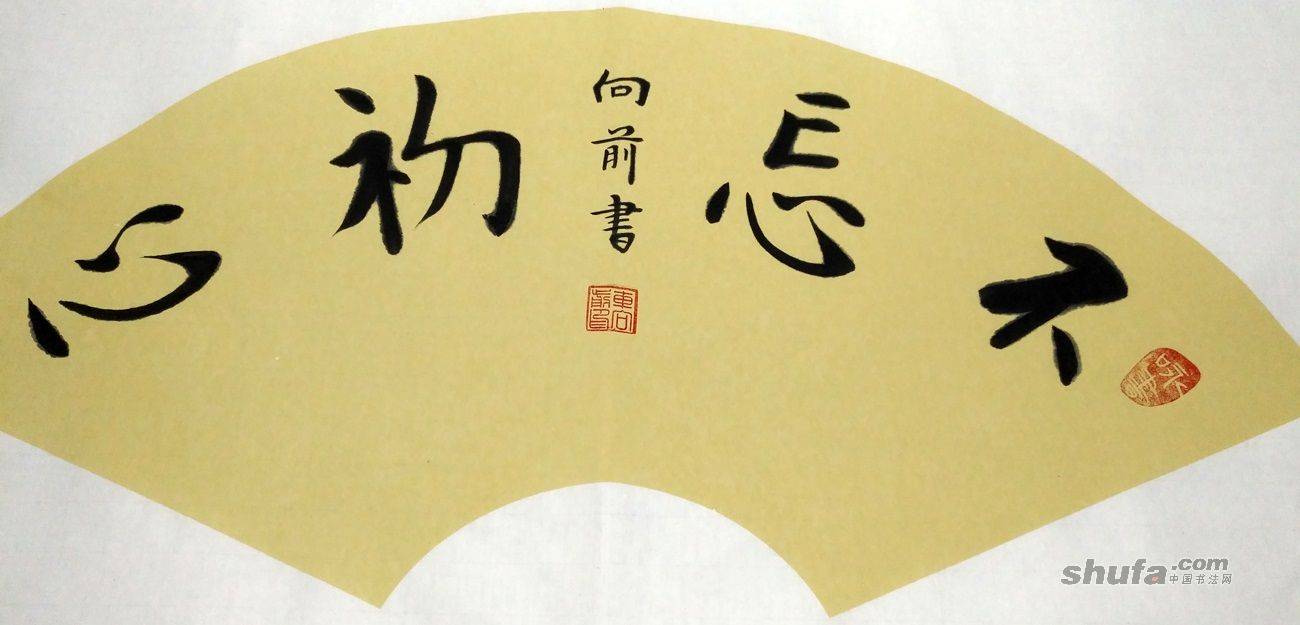 不忘初心
向前書
shufa.com
中国书法网